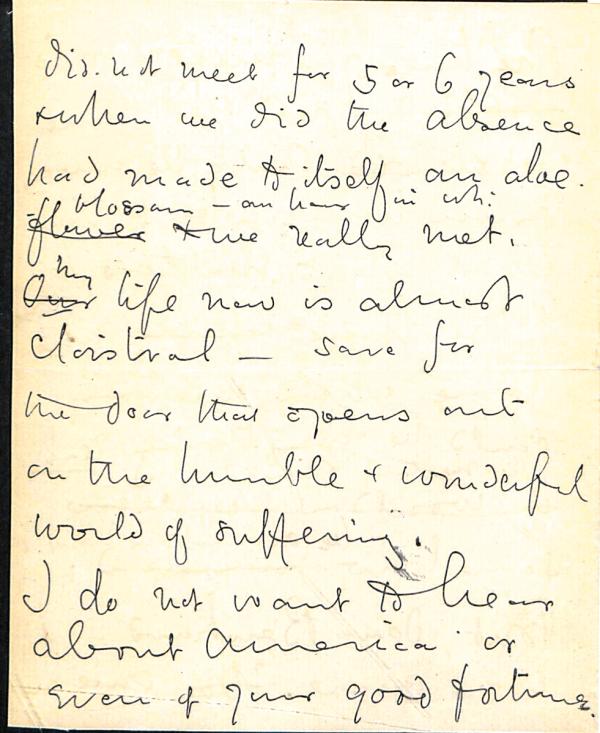 did not meet for 5 or 6 years
& when we did the absence
had made to itself an aloe.
blossom – an hour in wh:
flower & we really met.
my
Our life now is almost
Cloistral – save for
the door that opens out
on the humble & wonderful
world of suffering.
I do not want to hear
about America or
even of your good fortune.